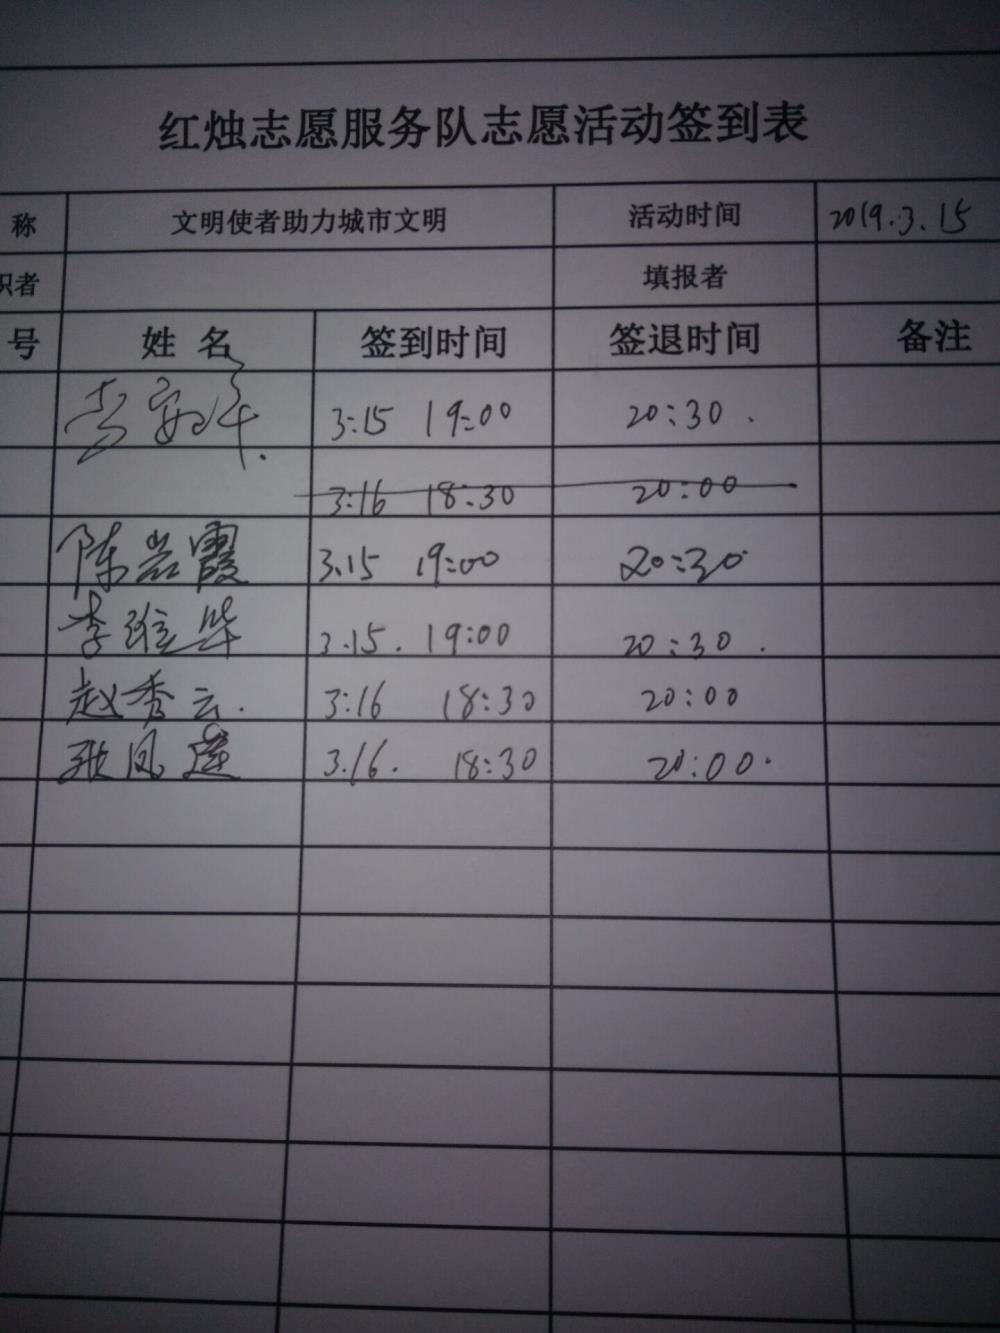 红烛志愿服务队志愿活动签到表
称 文明使者助力城市文明 活动时间 2019.3.15
织者 填报者
号 姓 名 签到时间 签退时间 备注
3:15 19:00 20:30.
3:16 18:30 20:00
陈岩霞 3.15 19:00 20:30
李維华 3.15. 19:00 20:30.
赵秀云. 3:16 18:30 20:00
张凤莲 3.16. 18:30 20:00.